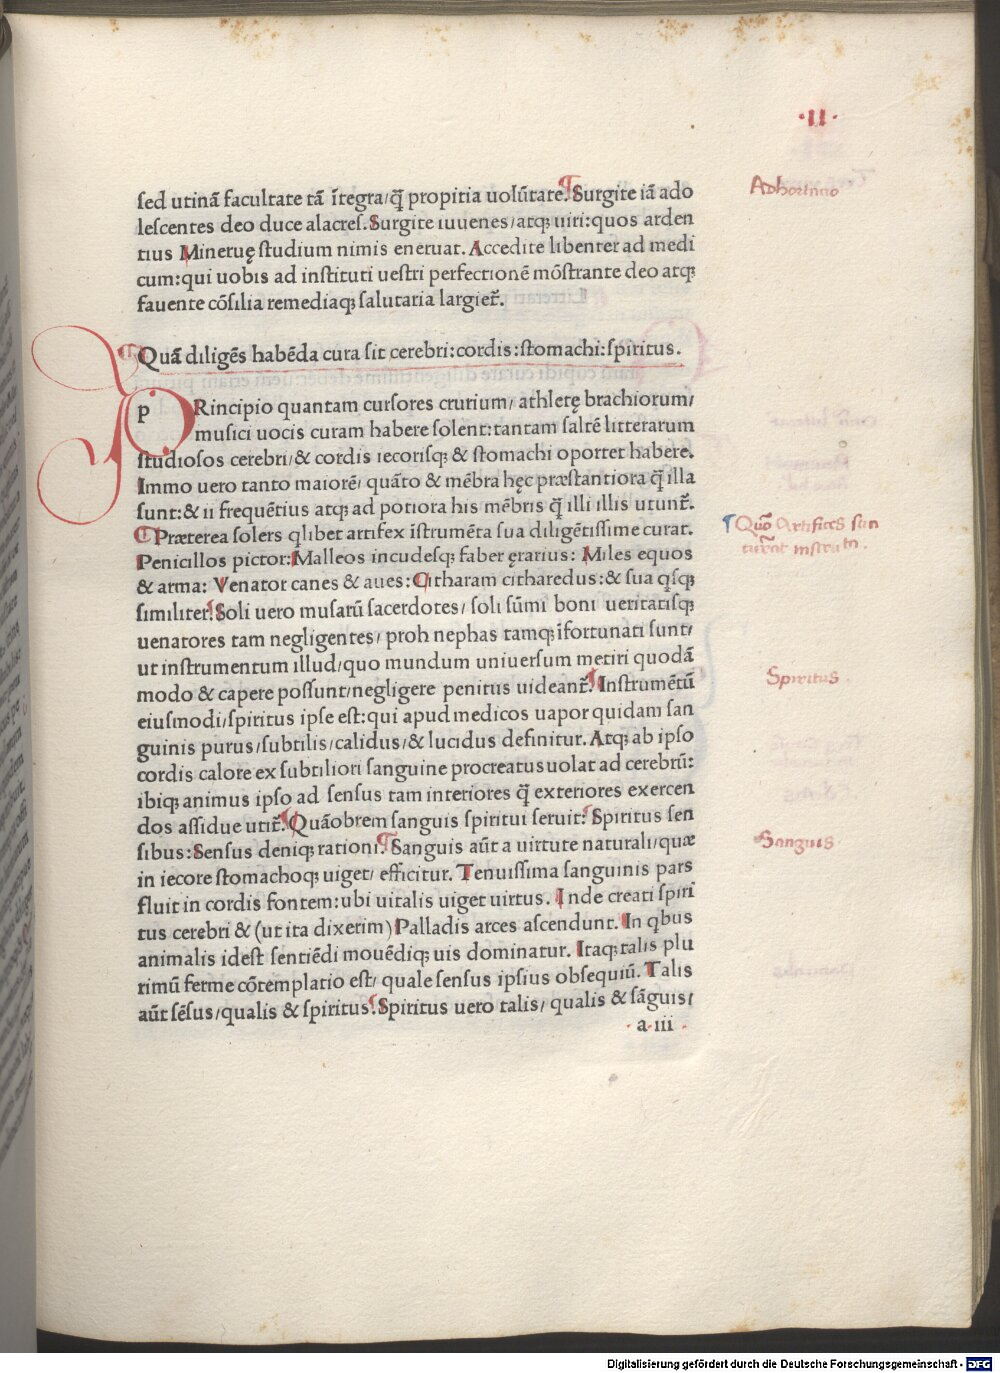 ·II·
sed utinā facultate tā ītegra/q̄ propitia uolūtate. Surgite iā ado
Adhortatio
lescentes deo duce alacres. Surgite iuuenes/atq; uiri: quos arden
tius Mineruę studium nimis eneruat. Accedite libenter ad medi
cum: qui uobis ad instituti uestri perfectionē mōstrante deo atq;
fauente cōsilia remediaq; salutaria largiet̃.
Quā diligēs habēda cura sit cerebri: cordis: stomachi: spiritus.
pRincipio quantam cursores crurium/ athletę brachiorum/
musici uocis curam habere solent: tantam saltē litterarum
studiosos cerebri/& cordis iecorisq; & stomachi oportet habere.
Immo uero tanto maiorē/ quāto & mēbra hęc præstantiora q̄ illa
sunt: & ii frequētius atq; ad potiora his mēbris q̄ illi illis utunt̃.
Quō Artifices sua
Præterea solers qlibet artifex īstrumēta sua diligētissime curat.
curent instrumēta.
Penicillos pictor: Malleos incudesq; faber ęrarius: Miles equos
& arma: Venator canes & aues: Citharam citharedus: & sua qsq;
similiter. Soli uero musarū sacerdotes/ soli sūmi boni ueritatisq;
uenatores tam negligentes/ proh nephas tamq; īfortunati sunt/
ut instrumentum illud/ quo mundum uniuersum metiri quodā
modo & capere possunt/negligere penitus uideant̃. Instrumētū
Spiritus.
eiusmodi/spiritus ipse est: qui apud medicos uapor quidam san
guinis purus/subtilis/calidus/& lucidus definitur. Atq; ab ipso
cordis calore ex subtiliori sanguine procreatus uolat ad cerebrū:
ibiq; animus ipso ad sensus tam interiores q̄ exteriores exercen
dos assidue utit̃. Quāobrem sanguis spiritui seruit. Spiritus sen
sibus: Sensus deniq; rationi. Sanguis aūt a uirtute naturali/quæ
Sanguis.
in iecore stomachoq; uiget/ efficitur. Tenuissima sanguinis pars
fluit in cordis fontem: ubi uitalis uiget uirtus. Inde creati spiri
tus cerebri & (ut ita dixerim) Palladis arces ascendunt. In qbus
animalis idest sentiēdi mouēdiq; uis dominatur. Itaq; talis plu
rimū ferme cōtemplatio est/ quale sensus ipsius obsequiū. Talis
aūt sēsus/qualis & spiritus. Spiritus uero talis/ qualis & sāguis/
a iii
Digitalisierung gefördert durch die Deutsche Forschungsgemeinschaft - DFG